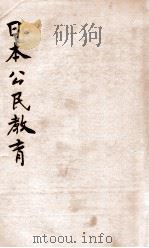 日本公民教育
mtoou.info
mtoou.info